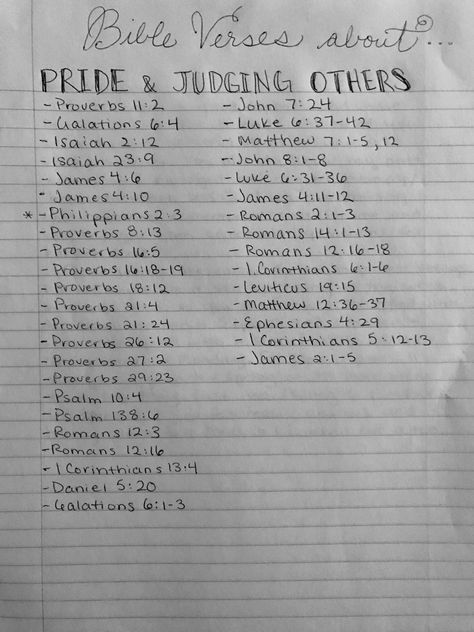 Bible Verses about...
PRIDE & JUDGING OTHERS
- Proverbs 11:2
- Galations 6:4
- Isaiah 2:12
- Isaiah 23:9
- James 4:6
- James 4:10
* - Philippians 2:3
- Proverbs 8:13
- Proverbs 16:5
- Proverbs 16:18-19
- Proverbs 18:12
- Proverbs 21:4
- Proverbs 21:24
- Proverbs 26:12
- Proverbs 27:2
- Proverbs 29:23
- Psalm 10:4
- Psalm 138:6
- Romans 12:3
- Romans 12:16
- 1 Corinthians 13:4
- Daniel 5:20
- Galations 6:1-3
- John 7:24
- Luke 6:37-42
- Matthew 7:1-5, 12
- John 8:1-8
- Luke 6:31-36
- James 4:11-12
- Romans 2:1-3
- Romans 14:1-13
- Romans 12:16-18
- 1 Corinthians 6:1-6
- Leviticus 19:15
- Matthew 12:36-37
- Ephesians 4:29
- 1 Corinthians 5:12-13
- James 2:1-5